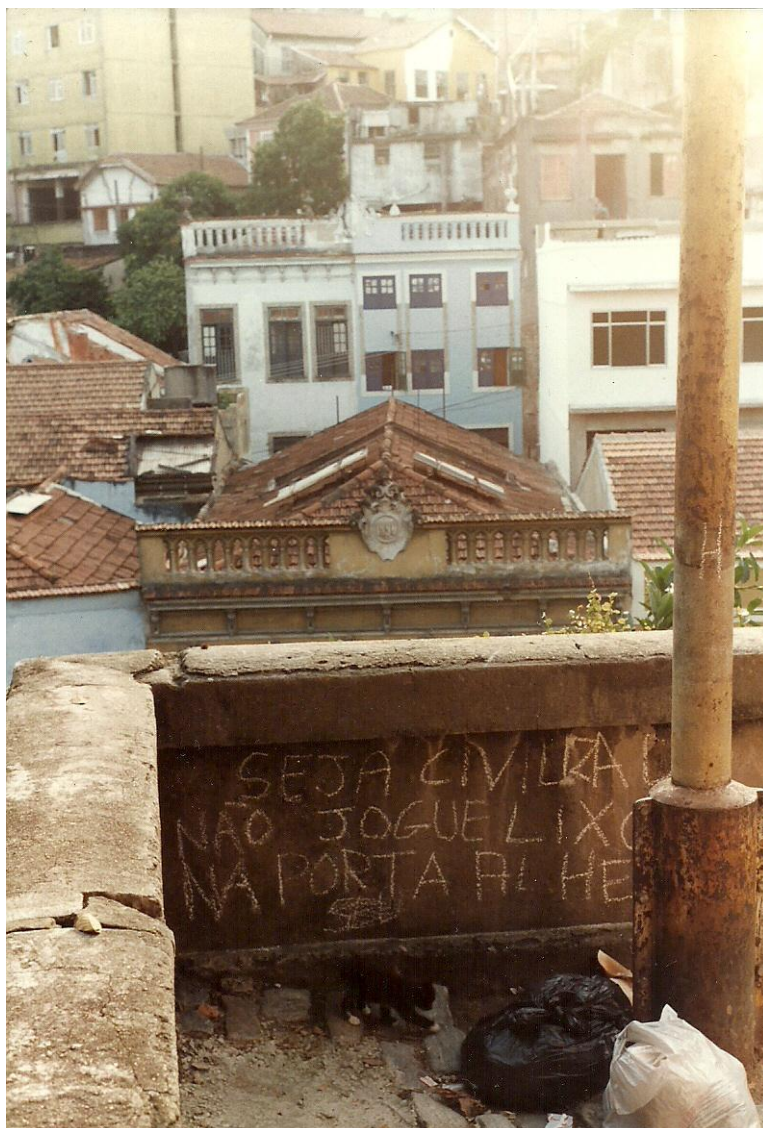 SEJA CIVILIZAD
NÃO JOGUE LIXO
NA PORTA ALHE